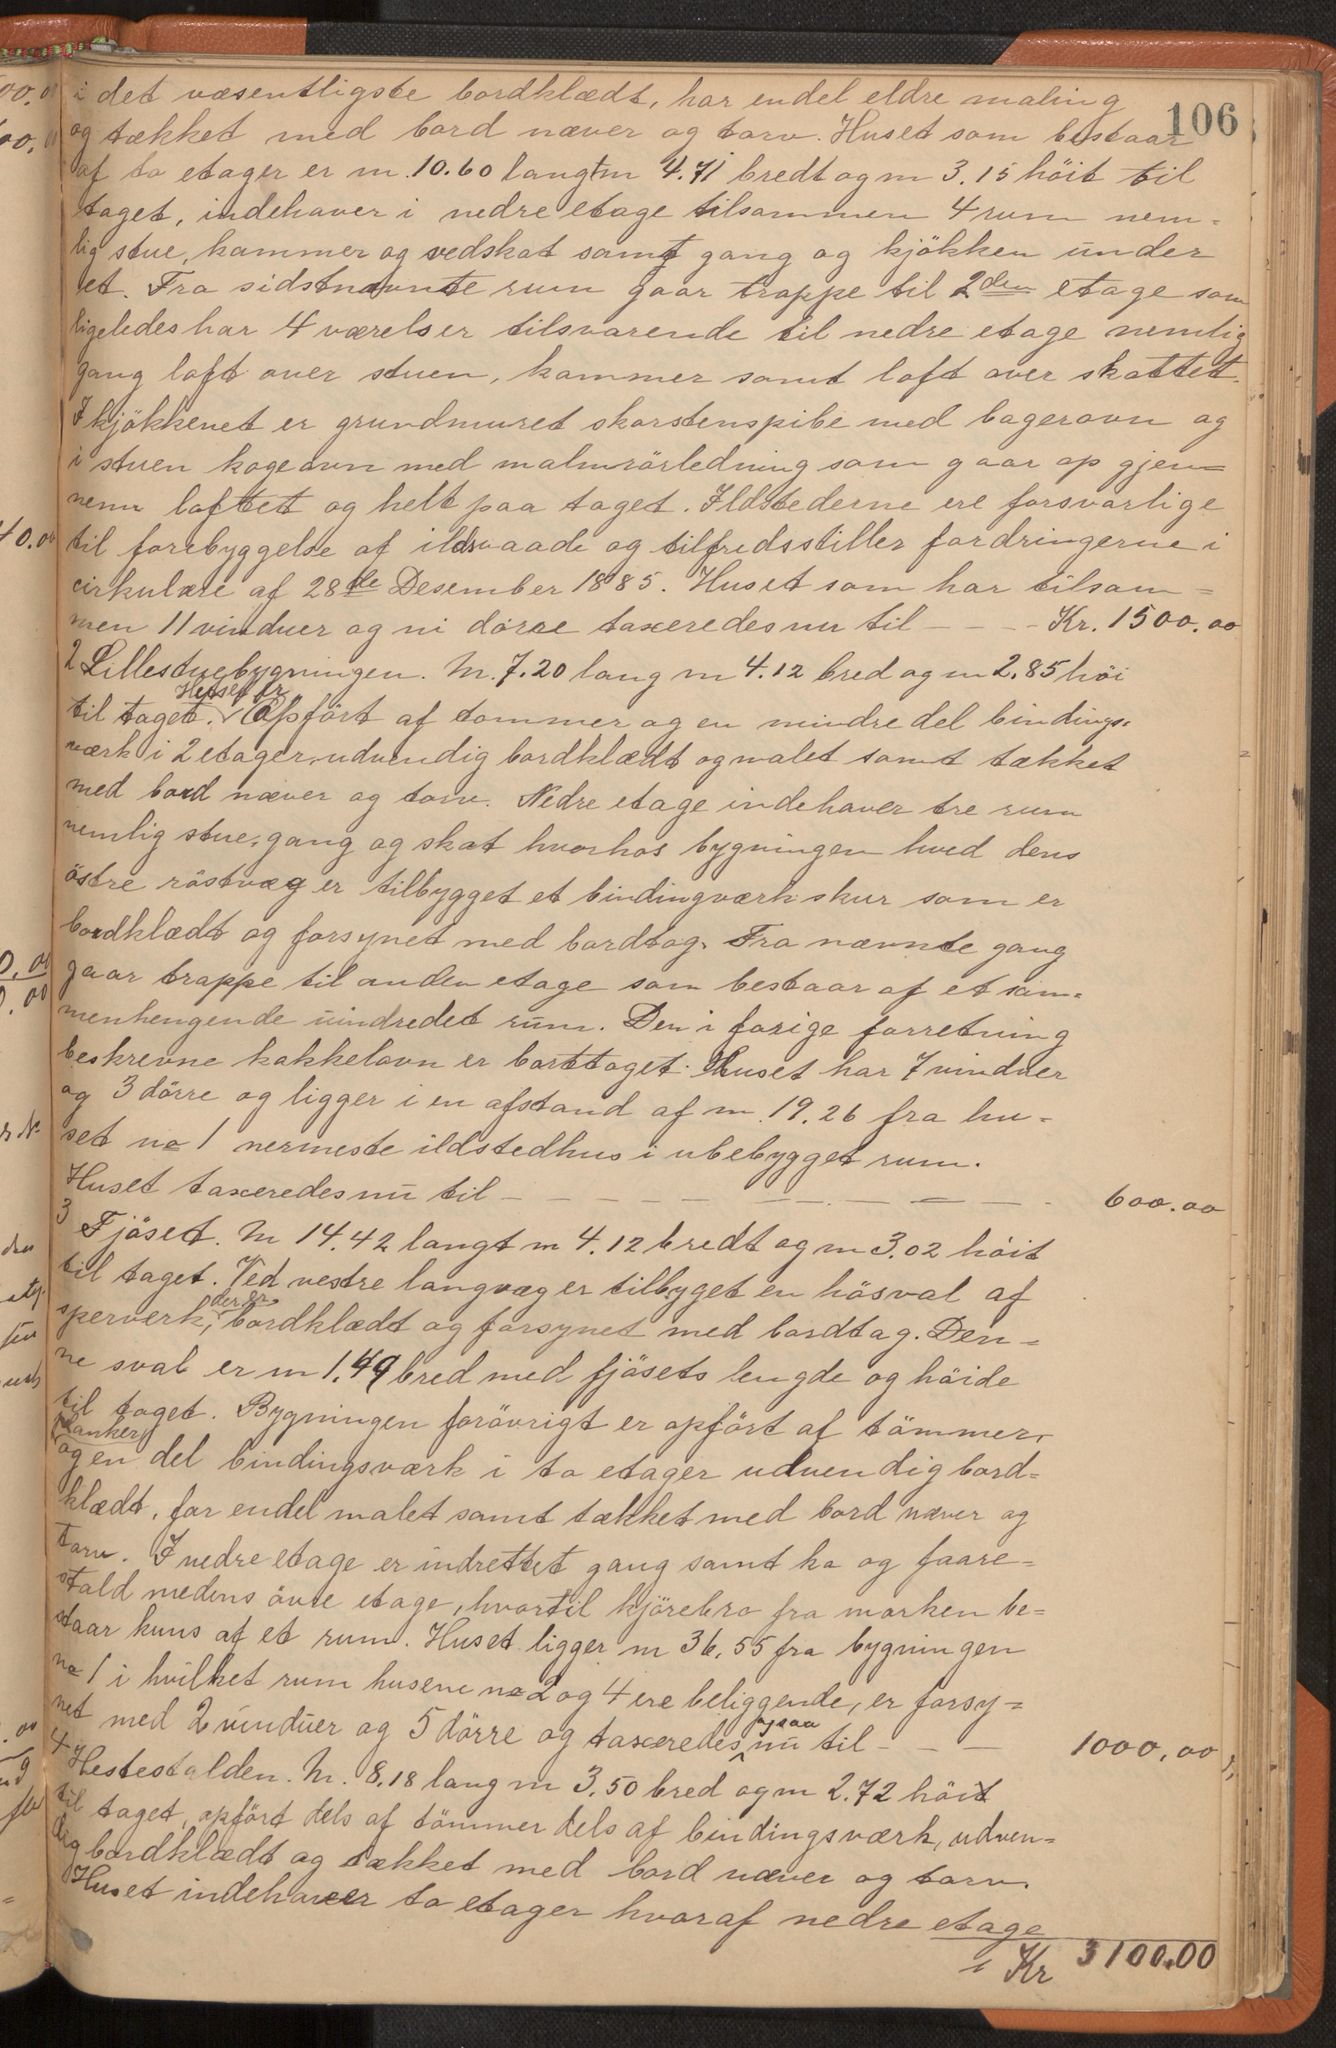 106
i det væsentligste bordklædt, har endel eldre maling
og tækket med bord næver og torv. Huset som bestaar
af to etager er m. 10.60 langt m 4.71 bredt og m 3.15 höit til
taget, indehaver i nedre etage tilsammen 4 rum nem=
lig stue, kammer og vedskot samt gang og kjökken under
et. Fra sidstnævnte rum gaar trappe til 2den etage som
ligeledes har 4 værelser tilsvarende til nedre etage nemlig
gang loft over stuen, kammer samt loft over skottet.
I kjökkenet er grundmuret skorstenspibe med bagerovn og
i stuen kogeovn med malmrörledning som gaar op gjen=
nem loftet og helt paa taget. Ildstederne ere forsvarlige
til forebyggelse af ildsvaade og tilfredsstiller fordringerne i
cirkulære af 28de Desember 1885. Huset som har tilsam=
men 11 vinduer og ni dörre taxeredes nu til - - - Kr. 1500.00
2 Lillestuebygningen. M. 7.20 lang m 4.12 bred og m 2.85 höi
til taget. Huset er Opfört af tømmer og en mindre del bindings=
værk i 2 etager, udvendig bordklædt og malet samt tækket
med bord næver og torv. Nedre etage indehaver tre rum
nemlig stue, gang og skot hvorhos bygningen hved dens
östre röstvæg er tilbygget et bindingværkskur som er
bordklædt og forsynet med bordtag. Fra nævnte gang
gaar trappe til anden etage som bestaar af et sam=
menhengende uindredet rum. Den i forige forretning
beskrevne kakkelovn er borttaget. Huset har 7 vinduer
og 3 dörre og ligger i en afstand af m. 19.26 fra hu=
set no 1 nermeste ildstedhus i ubebygget rum.
Huset taxeredes nu til - - - - - - - - - 600.00
3 Fjöset. M 14.42 langt m 4.12 bredt og m 3.02 höit
til taget. Ved vestre langvæg er tilbyget en hösval af
sperverk, der er bordklædt og forsynet med bordtag. Den=
ne sval er m 1.49 bred med fjösets lengde og höide
til taget. Bygningen forövrigt er opfört af tömmer,
planker
og en del bindingsværk i to etager udvendig bord=
klædt, for endel malet samt tækket med bord næver og
torv. I nedre etage er indrettet gang samt ko og faare=
stald medens övre etage, hvortil kjörebro fra marken be=
staar kuns af et rum. Huset ligger m 36.55 fra bygningen
no 1 i hvilket rum husene no 2 og 4 ere beliggende, er forsy=
net med 2 vinduer og 5 dörre og taxeredes ogsaa nu til - - - 1000.00
4 Hestestalden. M. 8.18 lang m 3.50 bred og m 2.72 höit
til taget, opfört dels af tömmer dels af bindingsværk, udven=
dig bordklædt og tækket med bord næver og torv.
Huset indehaver to etager hvoraf nedre etage
Kr 3100.00